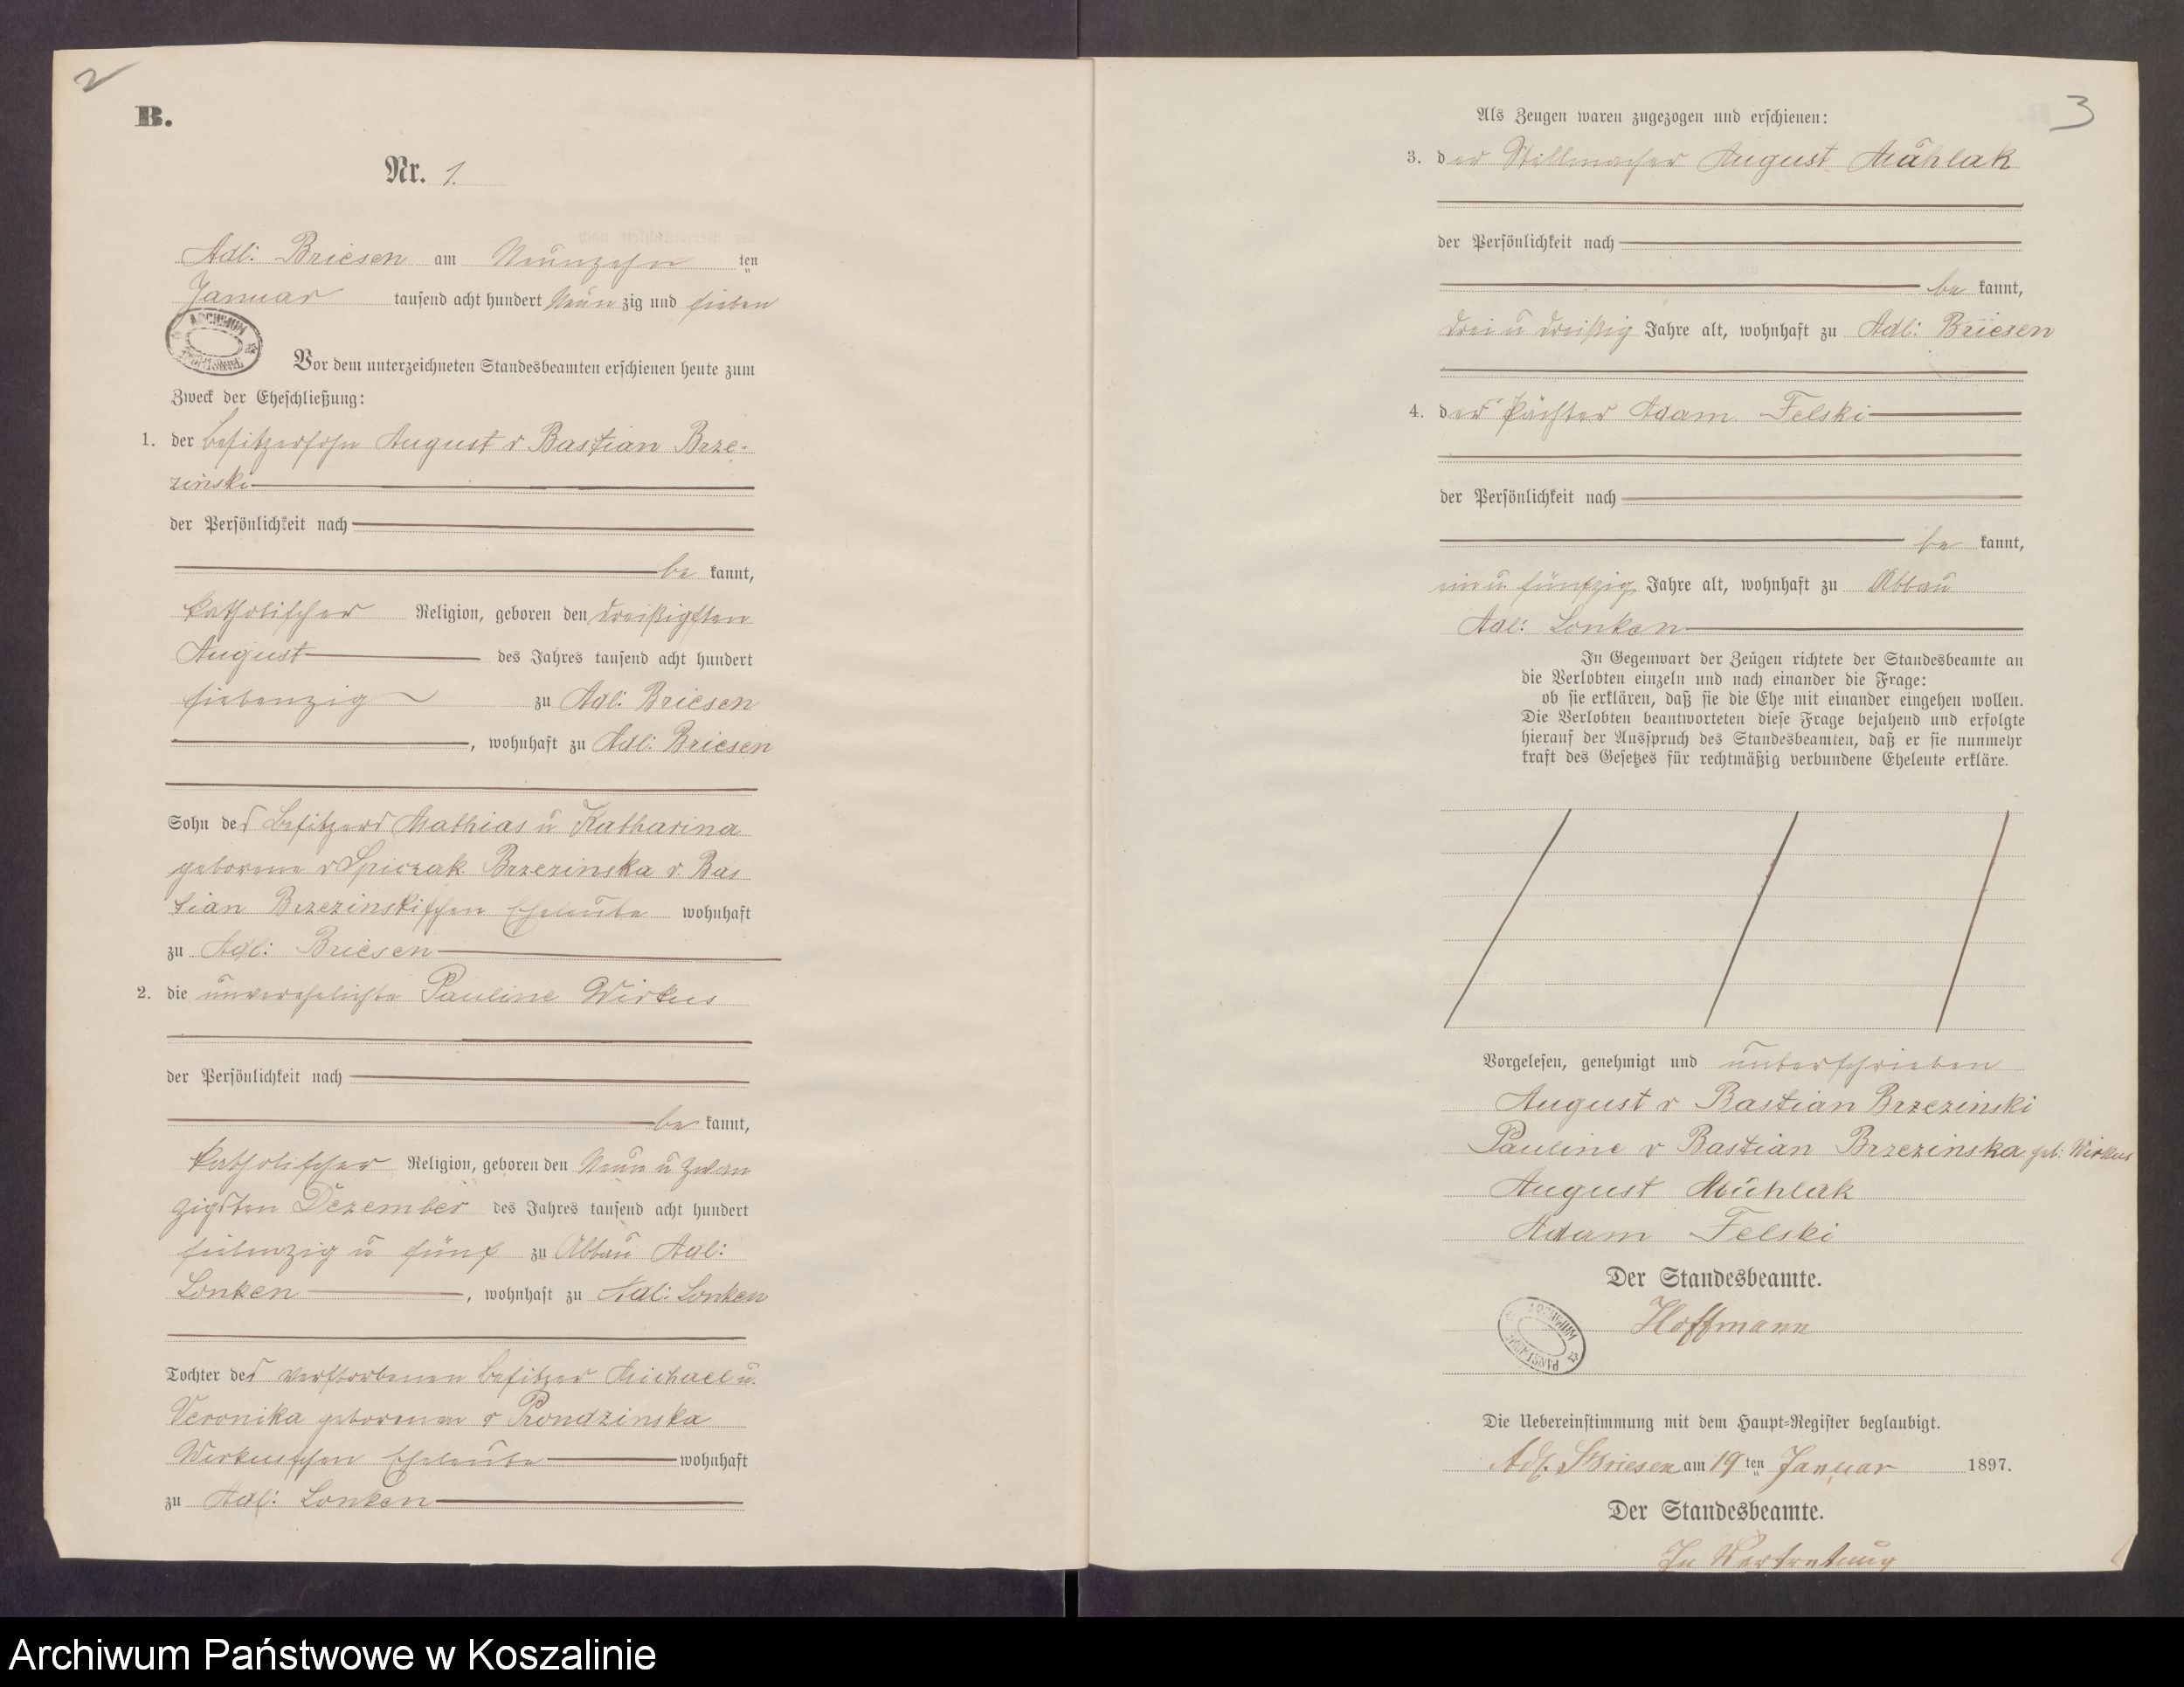 2
B.
Nr. 1.
Adl: Briesen am Neunzehn ten
Januar tausend acht hundert Neun zig und sieben
ARCHIWUM
Vor dem unterzeichneten Standesbeamten erschienen heute zum
Zweck der Eheschließung:
1. der Besitzersohn August v Bastian Brze-
zinski
der Persönlichkeit nach
be kannt,
katholischer Religion, geboren den dreißigsten
August des Jahres tausend acht hundert
siebenzig zu Adl: Briesen
, wohnhaft zu Adl: Briesen
Sohn des Besitzers Mathias u Katharina
geborene v Spiczak Brzezinska v Bas
tian Brzezinskischen Eheleute wohnhaft
zu Adl: Briesen
2. die unverehelichte Pauline Wirkus
der Persönlichkeit nach
be kannt,
katholischer Religion, geboren den Neun u zwan
zigsten Dezember des Jahres tausend acht hundert
siebenzig u fünf zu Abbau Adl:
Lonken , wohnhaft zu Adl: Lonken
Tochter des verstorbenen Besitzer Michael u.
Veronika geborenen v Prondzinska
Wirkusschen Eheleute wohnhaft
zu Adl: Lonken
3
Als Zeugen waren zugezogen und erschienen:
3. der Stellmacher August Mühlak
der Persönlichkeit nach
be kannt,
drei u dreißig Jahre alt, wohnhaft zu Adl: Briesen
4. der Pächter Adam Felski
der Persönlichkeit nach
be kannt,
ein u. fünfzig Jahre alt, wohnhaft zu Abbau
Adl: Lonken
In Gegenwart der Zeugen richtete der Standesbeamte an
die Verlobten einzeln und nach einander die Frage:
ob sie erklären, daß sie die Ehe mit einander eingehen wollen.
Die Verlobten beantworteten diese Frage bejahend und erfolgte
hierauf der Ausspruch des Standesbeamten, daß er sie nunmehr
kraft des Gesetzes für rechtmäßig verbundene Eheleute erkläre.
Vorgelesen, genehmigt und unterschrieben
August v Bastian Brzezinski
Pauline v Bastian Brzezinska geb: Wirkus
August Mühlak
Adam Felski
Der Standesbeamte.
Hoffmann
ARCHIWUM
Die Uebereinstimmung mit dem Haupt-Register beglaubigt.
Adl. Briesen am 19 ten Januar 1897.
Der Standesbeamte.
In Vertretung
Archiwum Państwowe w Koszalinie